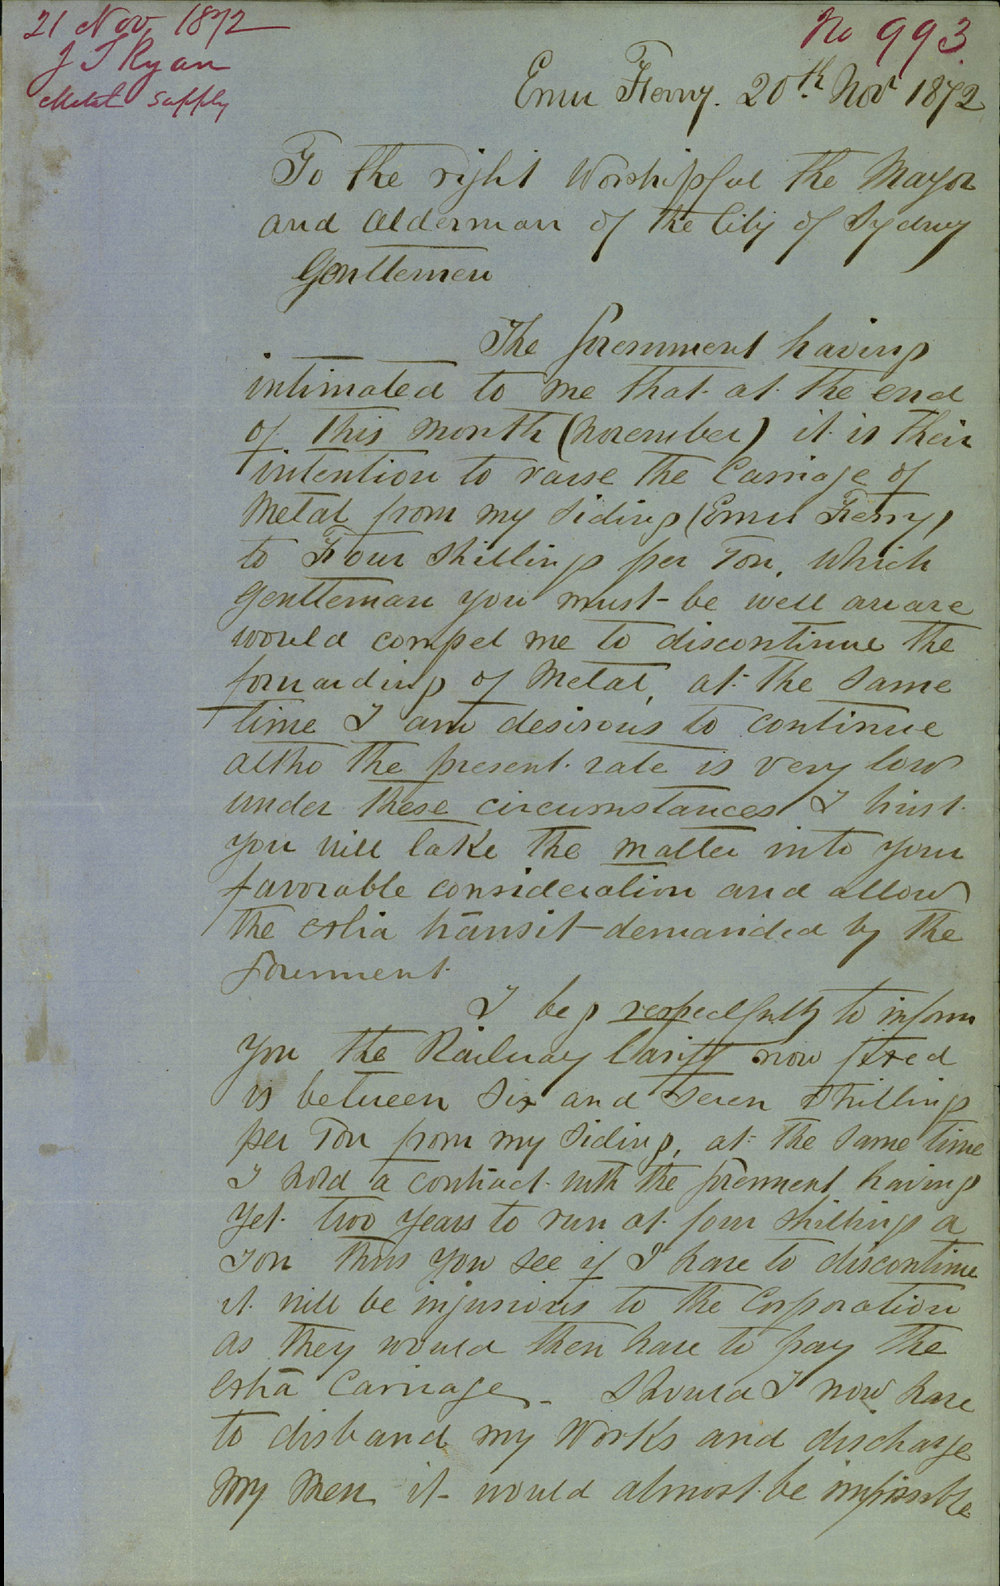 21 Nov. 1872
J T Ryan
Metal Supply
No 993
Emu Ferry. 20th Nov 1872
To the right Worshipful the Mayor
and Alderman of the City of Sydney
Gentlemen
The Government having
intimated to me that at the end
of this month (November) it is their
intention to raise the Carriage of
Metal from my siding (Emu Ferry)
to Four Shillings per Ton, which
gentleman you must be well aware
would compel me to discontinue the
forwarding of Metal, at the same
time I am desirous to continue
altho the present rate is very low
under these circumstances I trust
you will take the matter into your
favorable consideration and allow
the extra transit demanded by the
Government.
I beg respectfully to inform
you the Railway Tariff now fixed
is between Six and Seven Shillings
per Ton from my siding, at the same time
I hold a contract with the Government having
yet two years to run at four shillings a
Ton thus you see if I have to discontinue
it will be injurious to the Corporation
as they would then have to pay the
extra Carriage - Should I now have
to disband my Works and discharge
my men it would almost be impossible